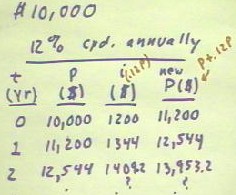 $10,000
12% cpd. annually
t (yr) P ($) i ($) (.12P) new P($) P+.12P
0 10,000 1200 11,200
1 11,200 1344 12,544
2 12,544 1409.2 13,953.2
? ?